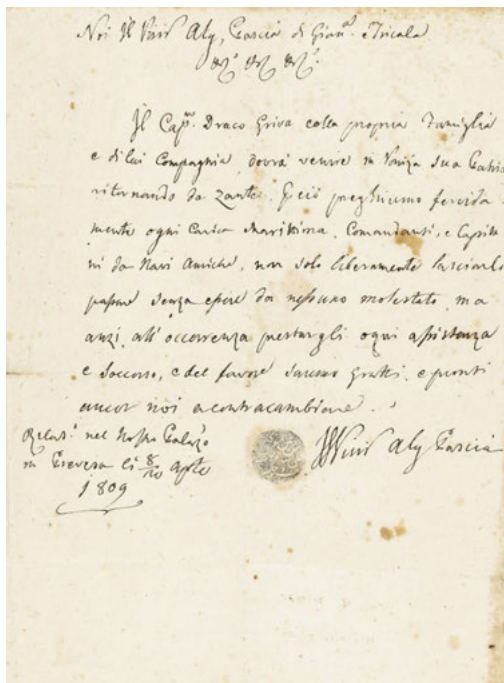 Noi Il Visir Aly, Pascià di Gian.ª e Tricala
&c.ª &c.ª &c.ª
Il Cap.º Draco Griva colla propria Famiglia
e di lui Compagnia, dovrà venire in Voniza sua Patria
ritornando da Zante. Perciò preghiamo fervida
mente ogni Carica Marittima, Comandanti, e Capita
ni da Navi Amiche, non solo liberamente lasciarlo
passare senza essere da nessuno molestato, ma
anzi all'occorrenza prestargli ogni assistenza
e soccorso, e del favore saremo gratti, e pronti
ancor noi a contracambiare.
Rilas.º nel Nostro Palazo
in Prevesa li 8/20 Ag.to
1809
Visir Aly Pascià